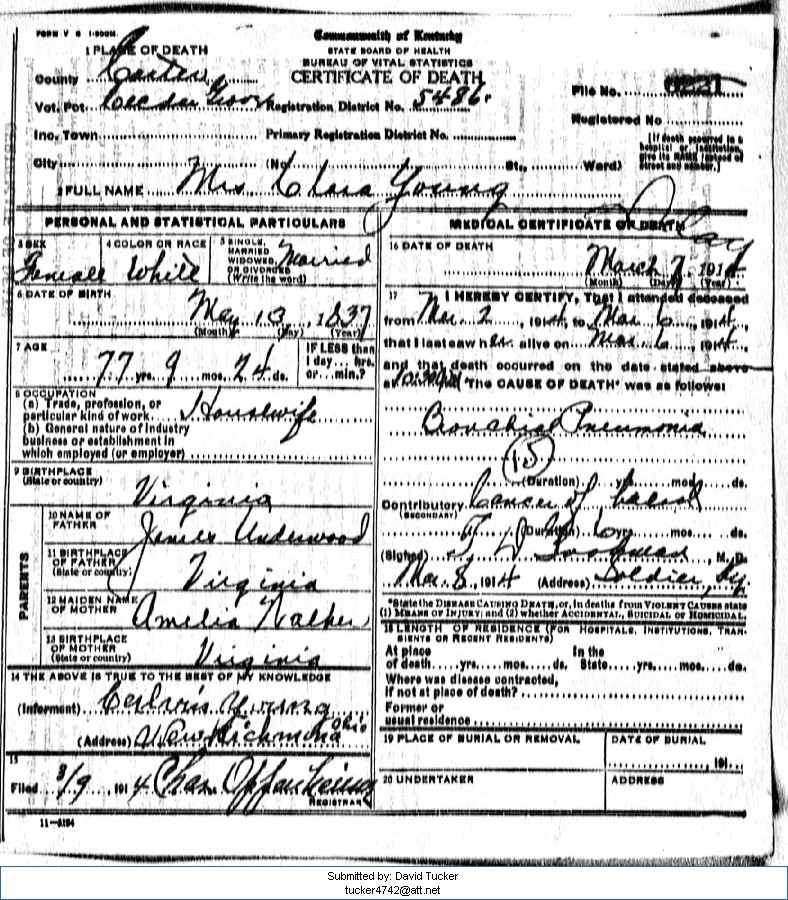 FORM V S 1-500M.
Commonwealth of Kentucky
STATE BOARD OF HEALTH
BUREAU OF VITAL STATISTICS
CERTIFICATE OF DEATH
1 PLACE OF DEATH
County Carter
Vot. Pct. Registration District No. 5486.
File No.
Registered No
Inc. Town Primary Registration District No.
[If death occurred in a hospital or institution, give its NAME instead of street and number.]
City (No St., Ward)
2 FULL NAME Mrs Clara Young
PERSONAL AND STATISTICAL PARTICULARS
3 SEX
Female
4 COLOR OR RACE
White
5 SINGLE, MARRIED WIDOWED, OR DIVORCED (Write the word)
Married
6 DATE OF BIRTH
May 13, 1837
(Month) (Day) (Year)
7 AGE
77 yrs. 9 mos. 24 ds.
IF LESS than 1 day... hrs. or... min.?
8 OCCUPATION
(a) Trade, profession, or
particular kind of work Housewife
(b) General nature of industry
business or establishment in
which employed (or employer)
9 BIRTHPLACE
(State or country)
Virginia
PARENTS
10 NAME OF FATHER
James Underwood
11 BIRTHPLACE OF FATHER
(State or country)
Virginia
12 MAIDEN NAME OF MOTHER
Amelia Walker
13 BIRTHPLACE OF MOTHER
(State or country)
Virginia
14 THE ABOVE IS TRUE TO THE BEST OF MY KNOWLEDGE
(Informant) Young
(Address) New Richmond Ohio
15
Filed 3/9, 1914 Chas.
REGISTRAR
11-5184
MEDICAL CERTIFICATE OF DEATH
16 DATE OF DEATH
March 7, 1914
(Month) (Day) (Year)
17 I HEREBY CERTIFY, That I attended deceased
from Mar 2, 1914, to Mar 6, 1914,
that I last saw her alive on Mar 6, 1914,
and that death occurred on the date stated above
at The CAUSE OF DEATH* was as follows:
Bronchial Pneumonia
(15)
(Duration) yrs. mos. ds.
Contributory Cancer of
(SECONDARY)
(Duration) 6 yrs. mos. ds.
(Signed) M. D.
Mar 8, 1914 (Address) Soldier, Ky.
*State the DISEASE CAUSING DEATH, or, in deaths from VIOLENT CAUSES state
(1) MEANS OF INJURY; and (2) whether ACCIDENTAL, SUICIDAL or HOMICIDAL.
18 LENGTH OF RESIDENCE (FOR HOSPITALS, INSTITUTIONS, TRANSIENTS OR RECENT RESIDENTS)
At place In the
of death yrs. mos. ds. State yrs. mos. ds.
Where was disease contracted,
if not at place of death?
Former or
usual residence
19 PLACE OF BURIAL OR REMOVAL
DATE OF BURIAL
, 191
20 UNDERTAKER
ADDRESS
Submitted by: David Tucker
tucker4742@att.net